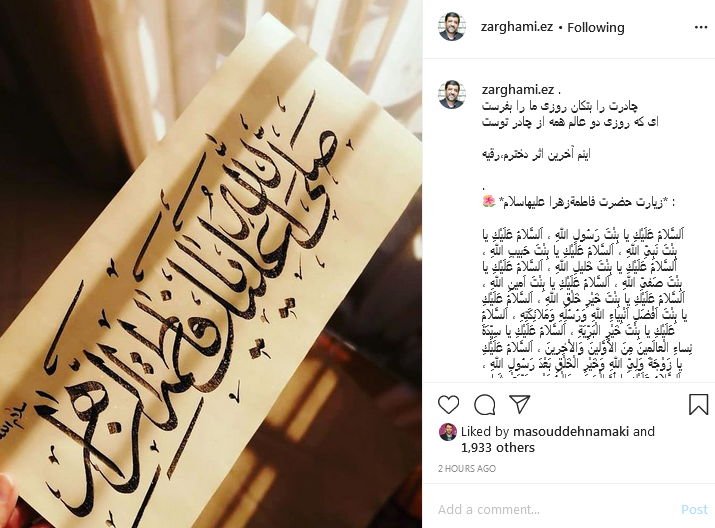 صلی الله علیک یا فاطمة الزهرا
سلام الله
zarghami.ez • Following
zarghami.ez .
چادرت را بتکان روزی ما را بفرست
ای که روزی دو عالم همه از چادر توست
اینم آخرین اثر دخترم،رقیه
.
🌺 *زیارت حضرت فاطمه‌زهرا علیهاسلام* :
اَلسَّلامُ عَلَيْكِ يا بِنْتَ رَسُولِ اللّهِ ، اَلسَّلامُ عَلَيْكِ يا
بِنْتَ نَبِيِّ اللّهِ ، اَلسَّلامُ عَلَيْكِ يا بِنْتَ حَبيبِ اللّهِ ،
اَلسَّلامُ عَلَيْكِ يا بِنْتَ خَليلِ اللّهِ ، اَلسَّلامُ عَلَيْكِ يا
بِنْتَ صَفِيِّ اللّهِ ، اَلسَّلامُ عَلَيْكِ يا بِنْتَ اَمينِ اللّهِ ،
اَلسَّلامُ عَلَيْكِ يا بِنْتَ خَيْرِ خَلْقِ اللّهِ ، اَلسَّلامُ عَلَيْكِ
يا بِنْتَ اَفْضَلِ اَنْبِياءِ اللّهِ وَرُسُلِهِ وَمَلائِكَتِهِ ، اَلسَّلامُ
عَلَيْكِ يا بِنْتَ خَيْرِ الْبَرِيَّةِ ، اَلسَّلامُ عَلَيْكِ يا سَيِّدَةَ
نِساءِ الْعالَمينَ مِنَ الاَْوَّلينَ وَالاْخِرينَ ، اَلسَّلامُ عَلَيْكِ
يا زَوْجَةَ وَلِيِّ اللّهِ وَخَيْرِ الْخَلْقِ بَعْدَ رَسُولِ اللّهِ ،
Liked by masouddehnamaki and
1,933 others
2 HOURS AGO
Add a comment... Post